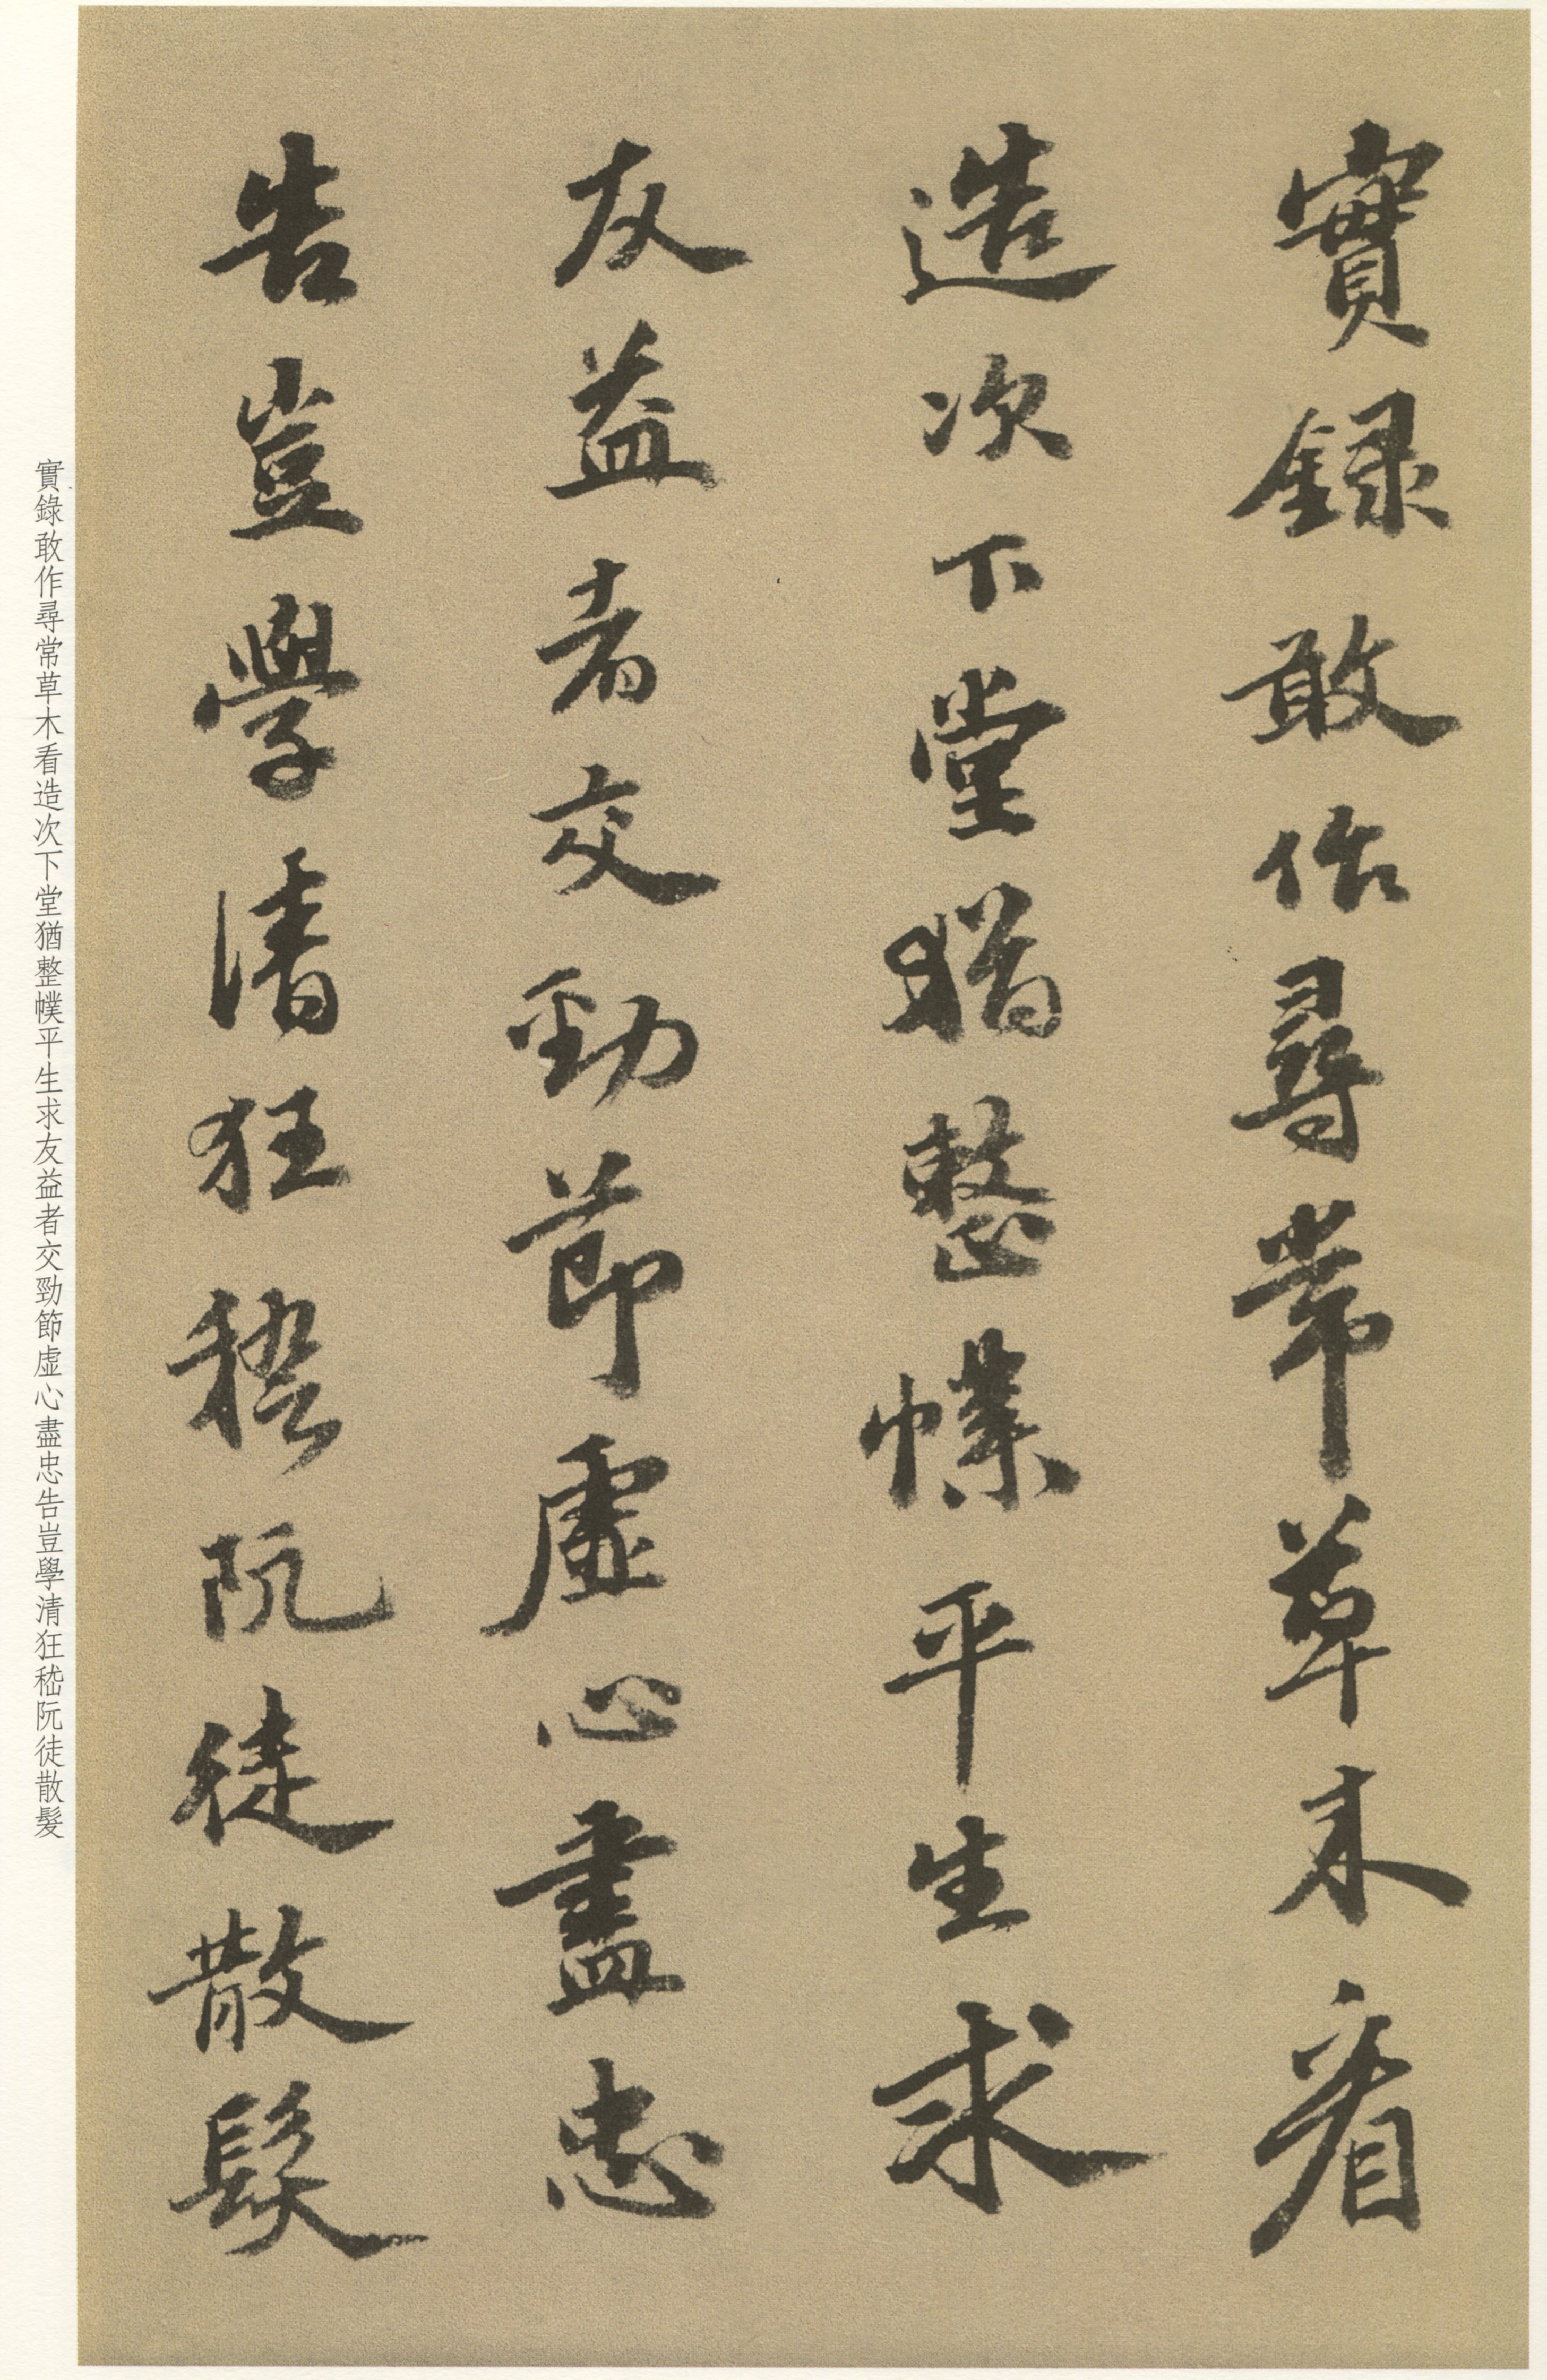 實錄敢作尋常草木看
造次下堂猶整幞平生求
友益者交勁節虛心盡忠
告豈學清狂嵇阮徒散髮
實錄敢作尋常草木看造次下堂猶整幞平生求友益者交勁節虛心盡忠告豈學清狂嵇阮徒散髮